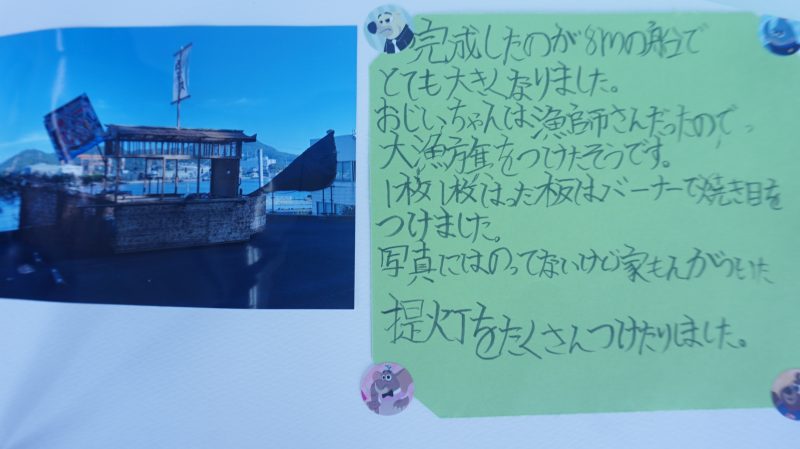 完成したのが8mの船で
とても大きくなりました。
おじいちゃんは漁師さんだったので、
大漁旗をつけたそうです。
1枚1枚はった板はバーナーで焼き目を
つけました。
写真にはのってないけど家もんがついた
提灯をたくさんつけたりしました。